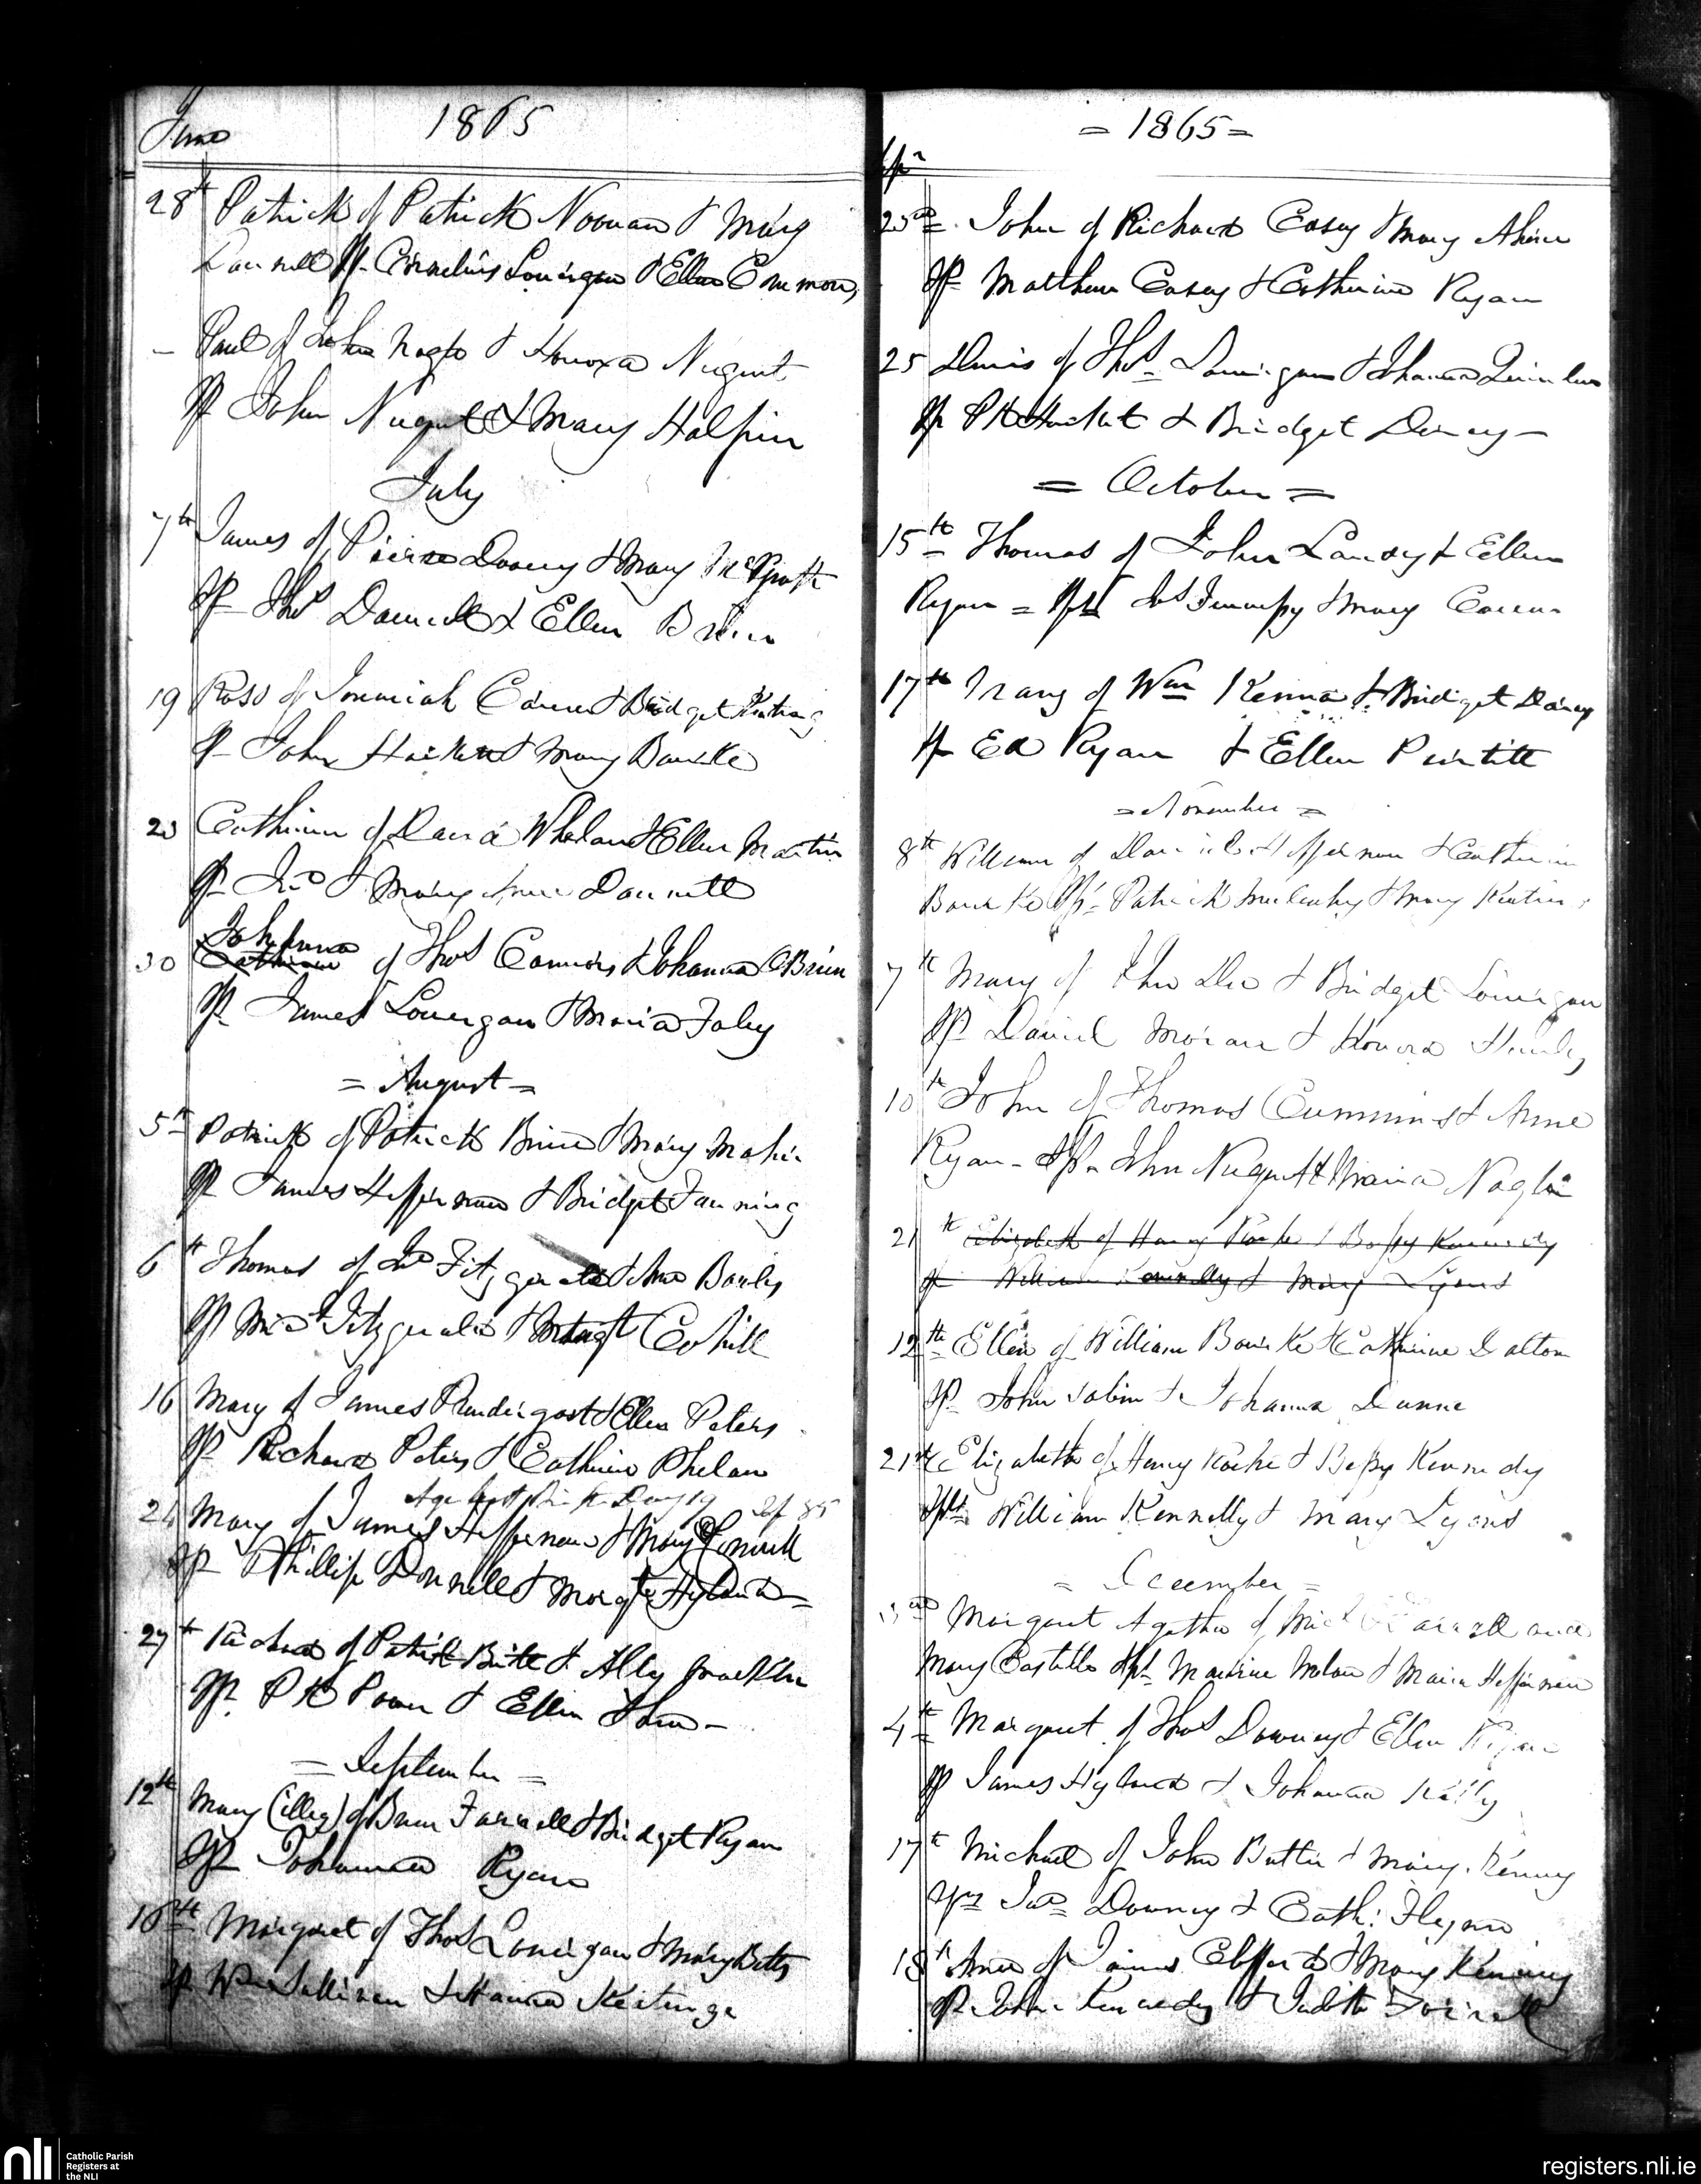 June 1865
28th Patrick of Patrick Noonan & Mary
Donnell Sp. Cornelius Lonergan & Ellen Commons
– Paul of John Nagle & Honora Nugent
Sp John Nugent & Mary Halpin
July
7th James of Pierce Downy & Mary McGrath
Sp Thos Donnell & Ellen Brien
19 of Jeremiah & Bridget Keating
Sp John Hackett & Mary Bourke
Catherine of David Whelan & Ellen Martin
Sp Jno & Mary Anne Donnell
Johanna
30 Catherine of Thos Connors & Johanna OBrien
Sp James Lonergan & Maria Foley
= August =
5th Patrick of Patrick Brien & Mary Maher
Sp James Heffernan & Bridget Fanning
6th Thomas of Jno Fitzgerald & Anne
Sp Fitzgerald & Margt Cahill
16 Mary of James Prendergast & Ellen Peters
Sp Richard Peters & Catherine Phelan
Mary of James Heffernan & Mary
Sp Phillip Donnell & Margt Hyland =
27th Richard of Patrick Britt & Ally
Sp. Pk Power & Ellen
= September =
12th Mary (illeg) of Farrell & Bridget Ryan
Sp Johanna Ryan
Margaret of Thos Lonergan & Mary Betts
Sp Wm Sullivan & Hanna Keatinge
= 1865 =
John of Richard Casey & Mary Ahern
Sp Matthew Casey & Catherine Ryan
25 Denis of Thos Lonergan & Johanna Quinlan
Sp Pk Hackett & Bridget –
= October =
15th Thomas of John & Ellen
Ryan = Sps & Mary
17th of Wm Kenna & Bridget
Sp Ed Ryan & Ellen
= November =
8th William of Daniel Heffernan & Catherine
Bourke Sps Patrick Mulcahy & Mary Keating
7th Mary of John & Bridget Lonergan
Sp Daniel Moran & Honora
10th John of Thomas Cummins & Anne
Ryan – Sps John Nugent & Maria Nagle
21st Elizabeth of Henry Roche & Bessy Kennedy
Sp William Kennelly & Mary Lyons
12th Ellen of William Bourke & Catherine Dalton
Sp John Tobin & Johanna Dunne
21st Elizabeth of Henry Roche & Bessy Kennedy
Sps William Kennelly & Mary Lyons
= December =
Margaret Agatha of and
Mary Costello Sps Maurice Nolan & Maria Heffernan
4th Margaret of Thos Downey & Ellen
Sp James Hyland & Johanna Kelly
17th Michael of John Butler & Mary Kenny
Sps Jas Downey & Cath: Flynn
18th Anne of James Clifford & Mary
Sp John Kennedy & Judith Farrell
nli
Catholic Parish
Registers at
the NLI
registers.nli.ie